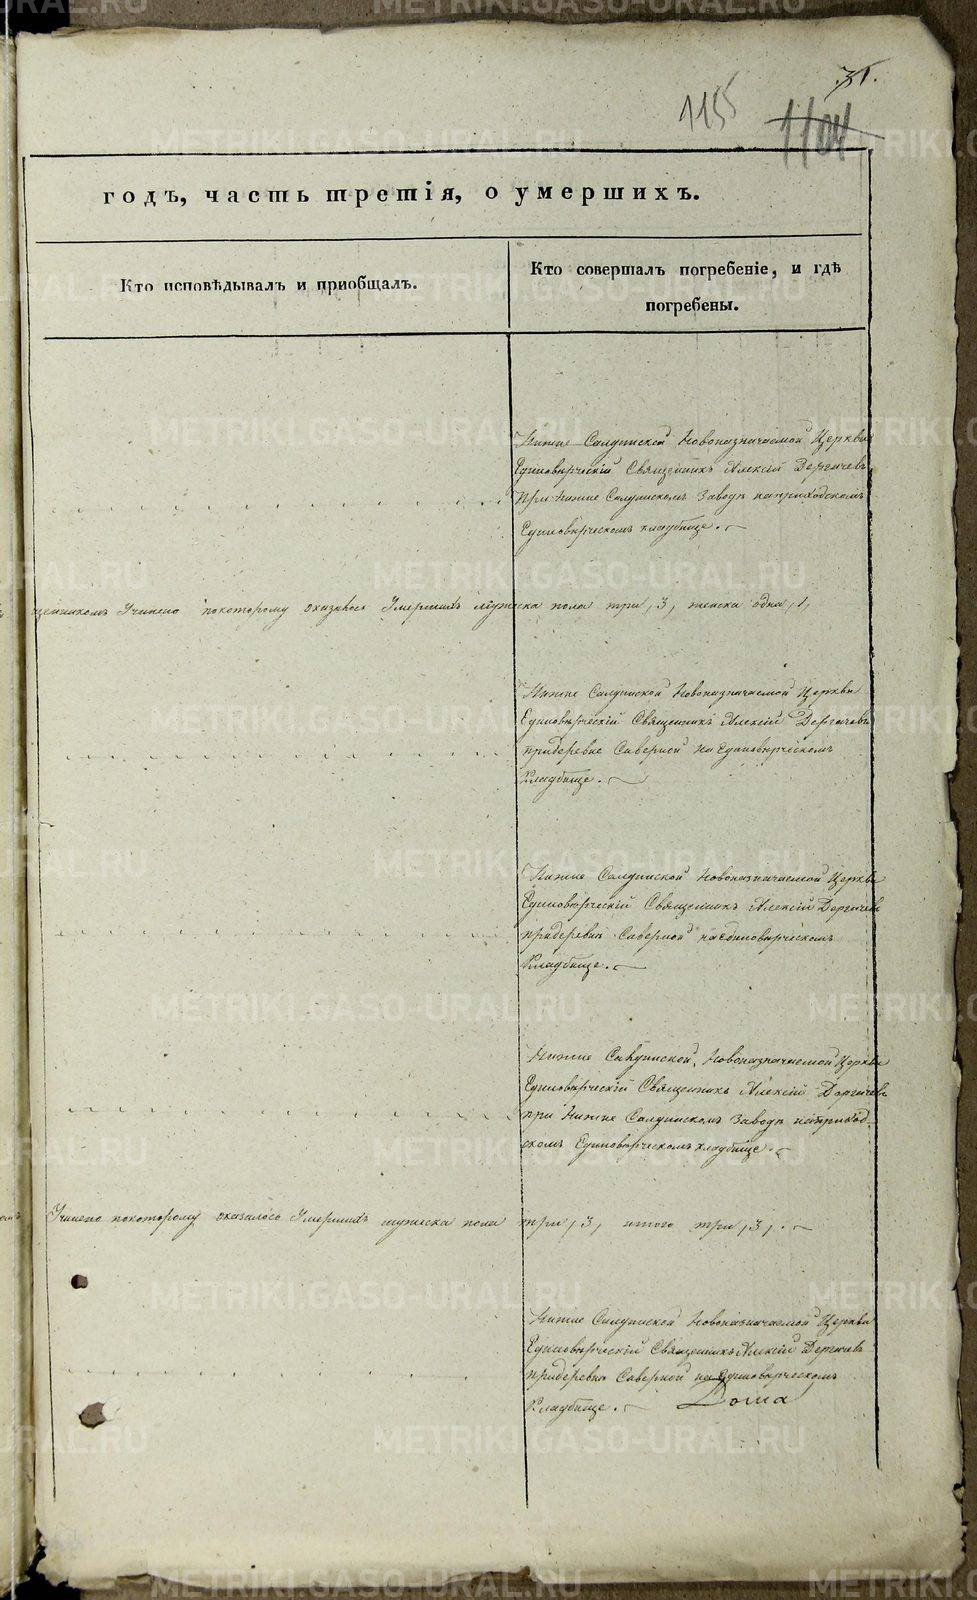 1155
1104
годъ, часть третія, о умершихъ.
Кто исповѣдывалъ и приобщалъ.
Кто совершалъ погребеніе, и гдѣ
погребены.
Нижне Салдинской Новоназначаемой Церкви
Единовѣрческій Священникъ Алексій Дергачевъ
При Нижне Салдинскомъ Заводѣ наприходскомъ
Единовѣрческомъ кладбище.
щенникомъ Учинено покоторому оказалось Умершихъ мужеска пола три, 3, женска одна, 1,
Нижне Салдинской Новоназначаемой Церкви
Единовѣрческій Священникъ Алексій Дергачевъ
придеревне Северной на Единовѣрческомъ
Кладбище.
Нижне Салдинской Новоназначаемой Церкви
Единовѣрческій Священникъ Алексій Дергачевъ
придеревни Северной наЕдиновѣрческомъ
Кладбище.
Нижне Салдинской Новоназначаемой Церкви
Единовѣрческій Священникъ Алексій Дергачевъ
при Нижне Салдинскомъ Заводѣ наприход-
скомъ Единовѣрческомъ кладбище.
Учинено покоторому оказалось Умершихъ мужеска пола три, 3, итого три, 3,
Нижне Салдинской Новоназначаемой Церкви
Единовѣрческій Священникъ Алексій Дергачевъ
придеревни Северной на Единовѣрческомъ
Кладбище.
METRIKI.GASO-URAL.RU